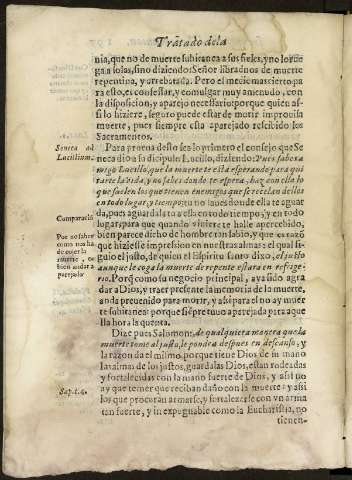 Tratado de la
nia, que no de muerte subitanea a sus fieles, y no lo rue
ga a solas, sino diziendo: Señor libradnos de muerte
repentina, y arrebatada. Pero el medio mas cierto pa
ra esto, es confessar, y comulgar muy a menudo, con
la disposicion, y aparejo necessario: porque quien as-
si lo hiziere, seguro puede estar de morir improuisa
muerte, pues siempre esta aparejado recibido los
Sacramentos.
Seneca ad
Lucillium.
Para prueua desto sea lo primero el consejo que Se
neca dio a su dicipulo Lucilo, diziendo: Pues sabe ya
migo Lucilo, que la muerte te esta esperando para qui
tarte la vida, y no sabes donde te espera, haz con ella lo
que suelen los que tienen enemigos que se recelan dellos
en todo lugar, y tiempo: tu no sabes donde ella te aguar
da, pues aguardala tu a ella en todo tiempo, y en todo
Comparacio
lugar: para que quando viniere te halle apercebido,
bien parece dicho de hombre tan sabio, y que es razõ
Por no saber
como nos ha
de coger la
muerte, es
bien andar a
parejado
que hiziesse impression en nuestras almas: el qual si-
guio el justo, de quien el Espiritu santo dixo, el justo
aunque le coga la muerte de repente estara en refrige-
rio. Porq como su negocio principal, aya sido agra
dar a Dios, y traer presente la memoria de la muerte,
anda preuenido para morir, y assi para el no ay muer
te subitanea: porque siẽpre tuuo aparejada para aque
lla hora la questa.
Dize pues Salomon: de qualquiera manera que la
muerte tome al justo, le pondra despues en descanso, y
la razon da el mismo, porque tiene Dios de su mano
Sap.c.4.
las almas de los justos, guardalas Dios, estan rodeadas
y fortalecidas con la mano fuerte de Dios, y assi no
ay que temer que reciban daño con la muerte: y assi
los que procuran armarse, y fortalezerse con vn arma
tan fuerte, y inexpugnable como la Eucharistia, no
tienen-